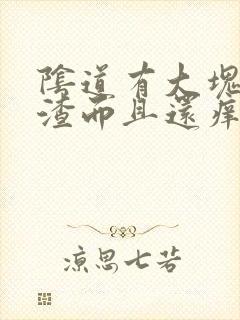 陰道有大塊
渣而且還痒
凉思七若